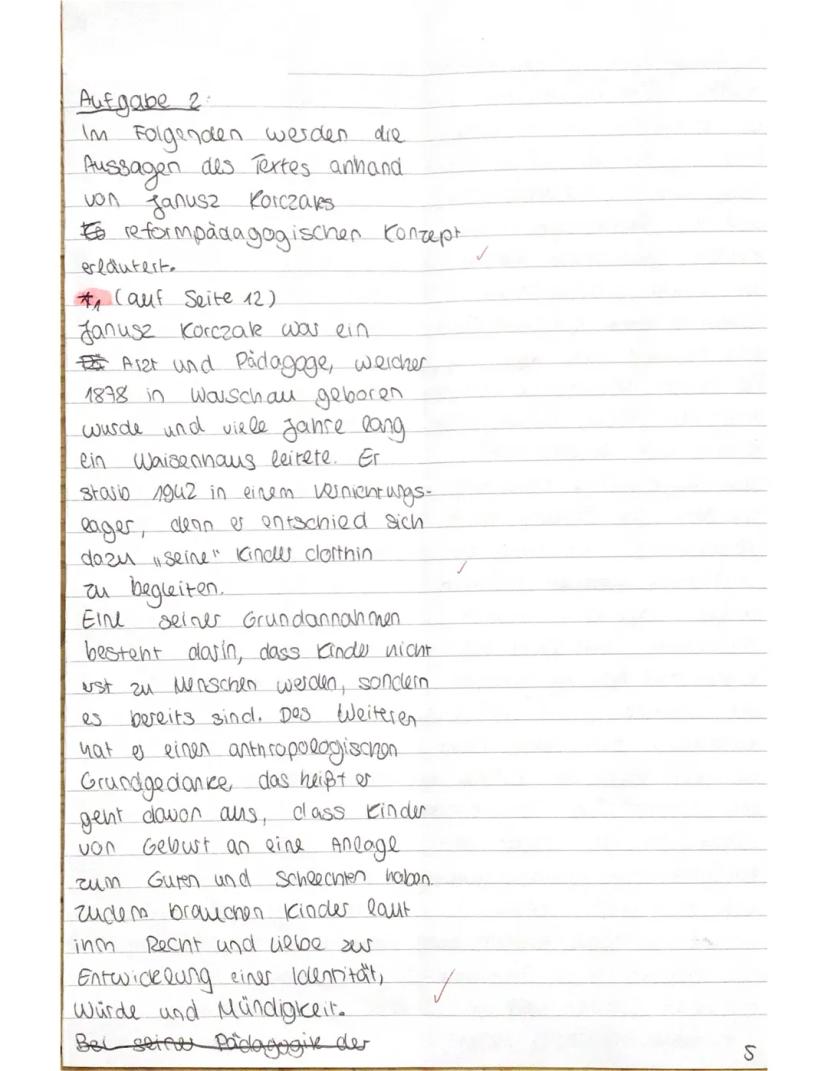 Aufgabe 2:
Im Folgenden werden die
Aussagen des Textes anhand
von Janusz Korczaks
reformpädagogischen Konzept
erläutert.
*1 (auf Seite 12)
Janusz Korczak war ein
Arzt und Pädagoge, welcher
1878 in Warschau geboren
wurde und viele Jahre lang
ein Waisenhaus leitete. Er
starb 1942 in einem Vernichtungs-
lager, denn er entschied sich
dazu "seine" Kinder dorthin
zu begleiten.
Eine seiner Grundannahmen
besteht darin, dass Kinder nicht
erst zu Menschen werden, sondern
es bereits sind. Des Weiteren
hat er einen anthropologischen
Grundgedanke, das heißt er
geht davon aus, dass Kinder
von Geburt an eine Anlage
zum Guten und Schlechten haben.
Zudem brauchen Kinder laut
ihm Recht und Liebe zur
Entwicklung einer Identität,
Würde und Mündigkeit.
Bei seiner Pädagogik der
5